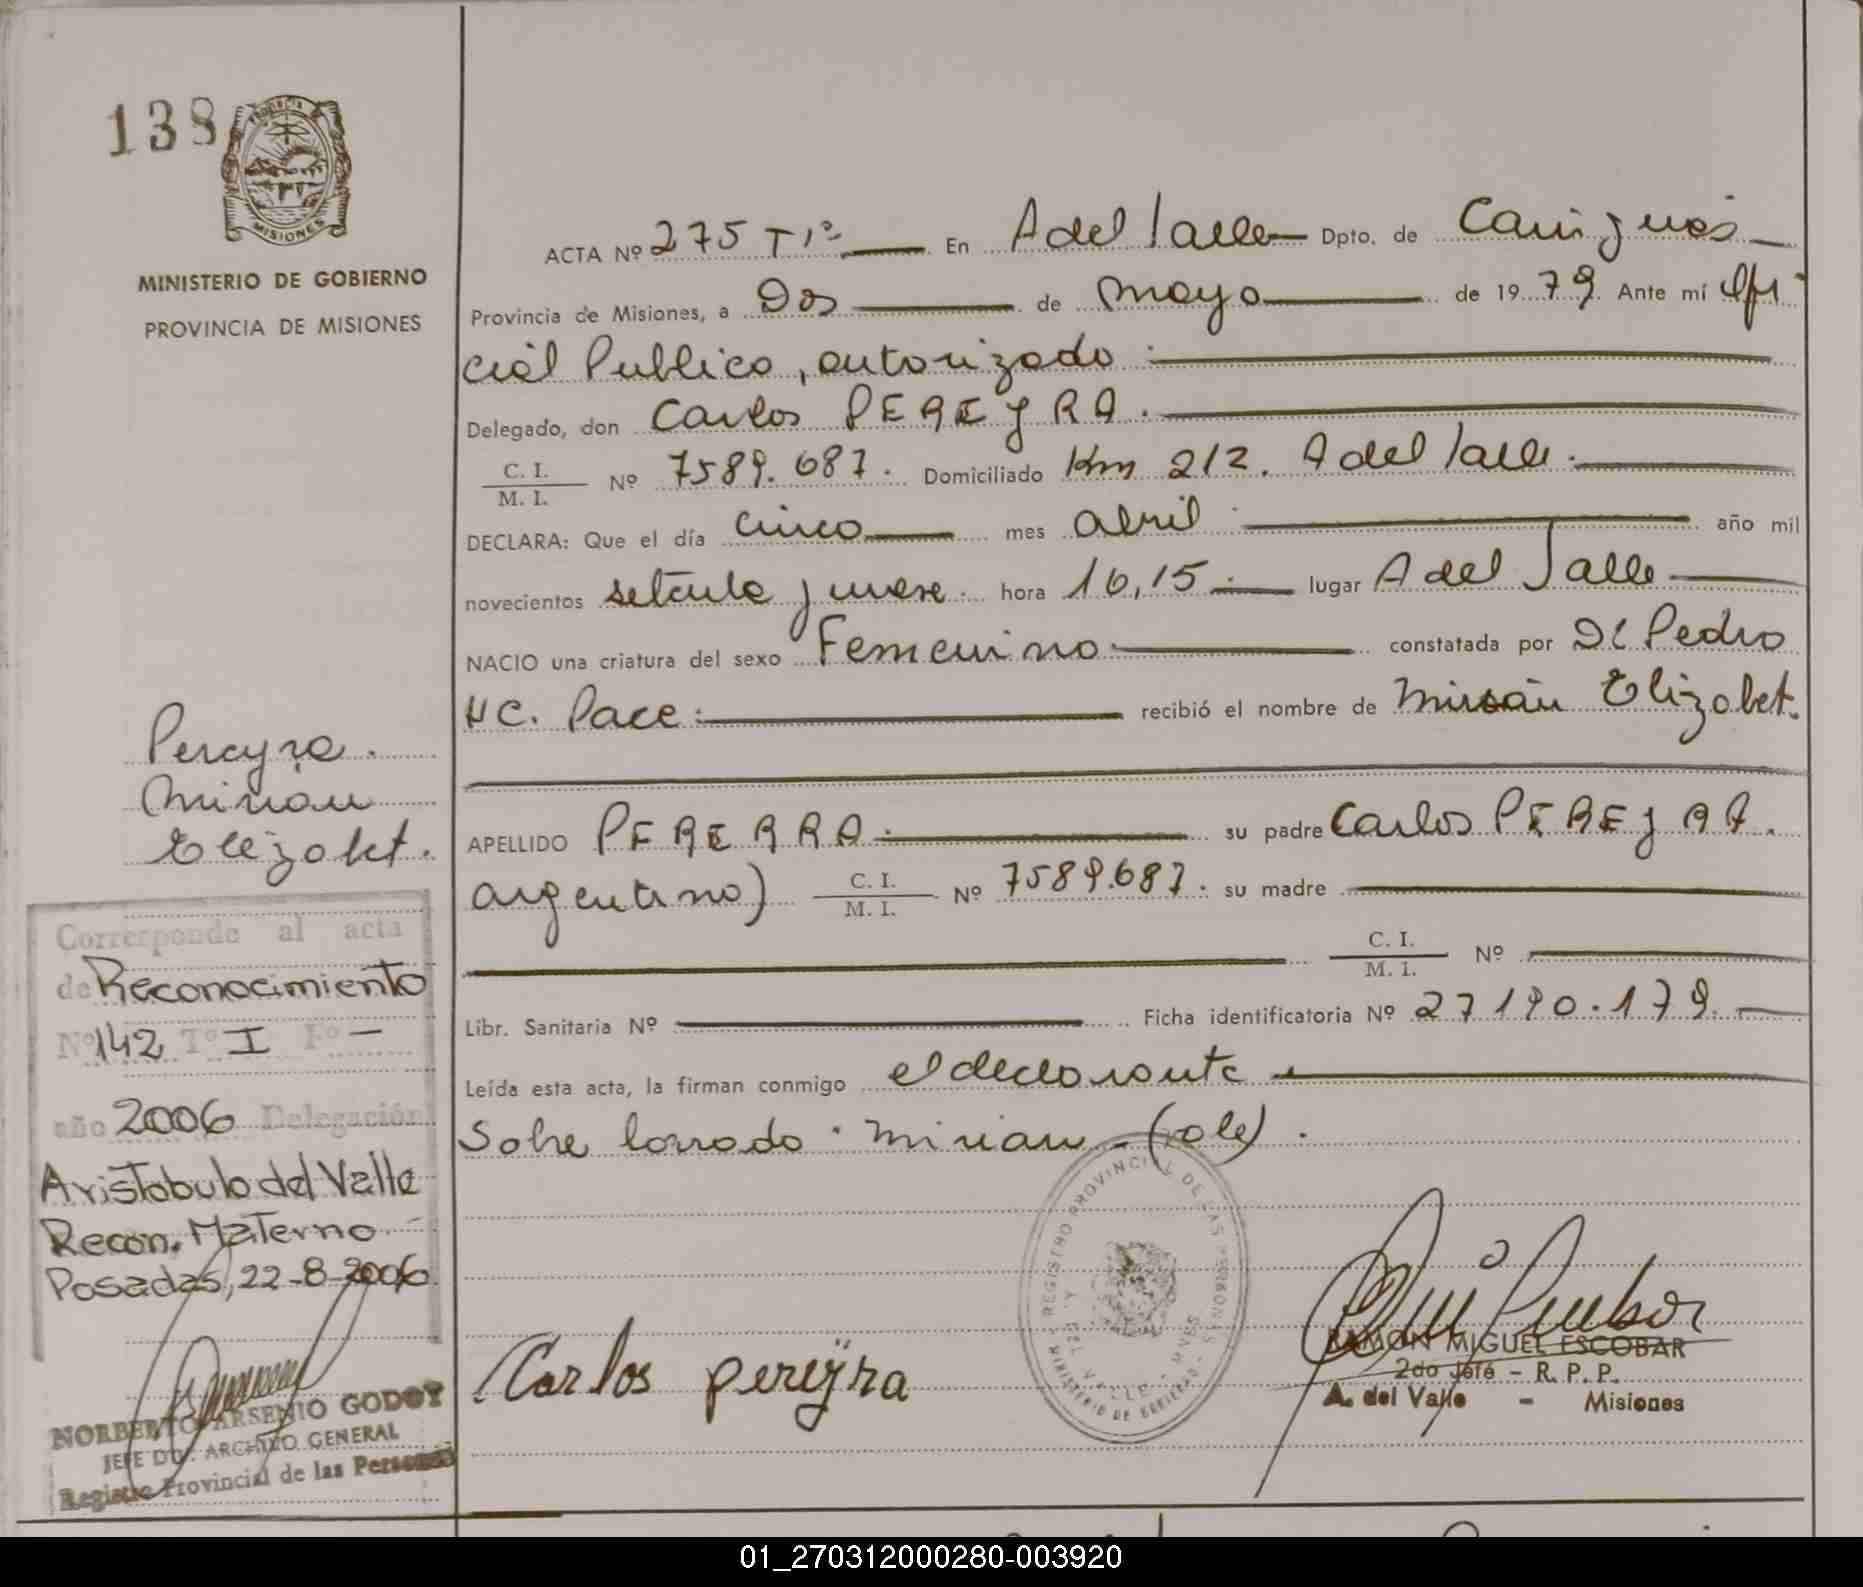 138
PROVINCIA
MISIONES
MINISTERIO DE GOBIERNO
PROVINCIA DE MISIONES
ACTA Nº 275 T 1º En A del Valle Dpto. de Cainguás
Provincia de Misiones, a Dos de mayo de 1979. Ante mí Ofi
cial Publico, autorizado
Delegado, don Carlos PEREYRA.
C. I. / M. I. Nº 7589.687. Domiciliado Km 212. A del Valle.
DECLARA: Que el día cinco mes abril año mil
novecientos setenta y nueve. hora 16,15 lugar A del Valle
NACIO una criatura del sexo Femenino constatada por Dr Pedro
HC. Pace. recibió el nombre de Mirian Elizabet.
APELLIDO PERERRA su padre Carlos PEREYRA.
argentino) C. I. / M. I. Nº 7589.687. su madre
C. I. / M. I. Nº
Libr. Sanitaria Nº Ficha identificatoria Nº 27190.179.
Leída esta acta, la firman conmigo el declarante
Sobre borrado: Mirian - (vale).
Carlos pereyra
REGISTRO PROVINCIAL DE LAS PERSONAS
MINISTERIO DE GOBIERNO
DEL VALLE - MNES
RAMON MIGUEL ESCOBAR
2do Jefe - R. P. P.
A. del Valle - Misiones
Pereyra.
Mirian
Elizabet.
Corresponde al acta
de Reconocimiento
Nº 142 Tº I Fº —
año 2006 Delegación
Aristobulo del Valle
Recon. Materno
Posadas, 22-8-2006
NORBERTO ARSENIO GODOY
JEFE DPTO. ARCHIVO GENERAL
Registro Provincial de las Personas
01_270312000280-003920